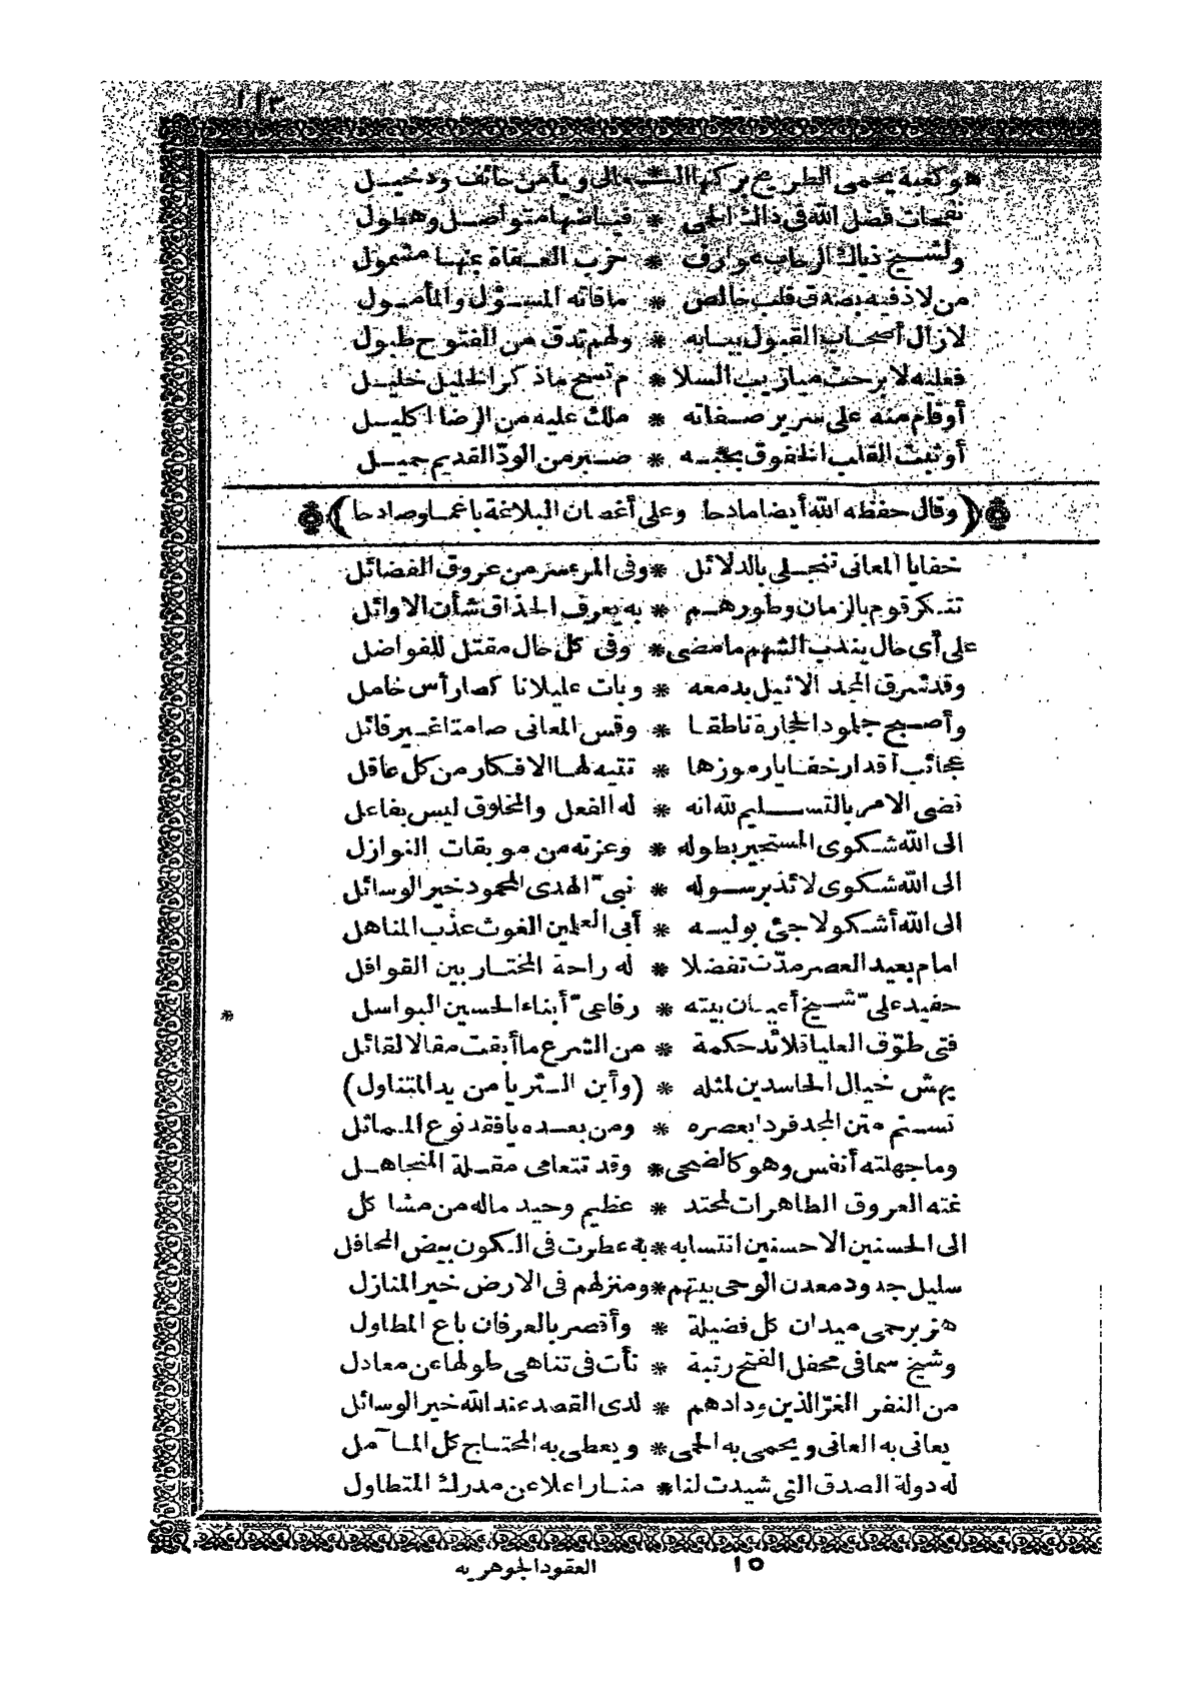 ١١٣
وكعبة يحمى الطريح بركنها السـامى ويأمن خائف ودخيـل
نفحات فضل الله فى ذاك الحمى * فياضها متواصـل وهطول
ولشيخ ذياك الرحاب عوارف * حزب العفاة بها مشمول
من لاذ فيه بصدق قلب خالص * ما فاته المسؤل والمأمـول
لازال أصحاب القبول ببابه * ولهم تدق من الفتوح طبول
فعليه لا برحت ميازيب السلا * م تسح ماذكر الخليل خليـل
أوقام منه على سرير صفاته * ملك عليه من الرضا اكليـل
أوثبت القلب الخفوق بحبـه * صـبر من الود القديم جميـل
(وقال حفظه الله أيضا مادحا وعلى أغصان البلاغة باغما وصادحا)
خفايا المعانى تنجـلى بالدلائل * وفى المرء سر من عروق الفضائل
تنـكر قوم بالزمان وطورهـم * به يعرف الحذاق شأن الاوائل
على أى حال يندب الشهم ما مضى * وفى كل حال مقتل للفواضل
وقد شرق المجد الاثيل بدمعه * وبات عليلا نا كصا رأس خامل
وأصـبح جلمود الحجارة ناطقـا * وقس المعانى صامتا غـير قائل
عجائب أقدار خفـايا رموزها * تتيه لهـا الافـكار من كل عاقل
قضى الامر بالتسـليم لله انه * له الفعل والمخلوق ليس بفاعل
الى الله شـكوى المستجير بطوله * وعزته من موبقات النوازل
الى الله شـكوى لائذ برسـوله * نبىّ الهدى المحمود خير الوسائل
الى الله أشـكو لاجئ بوليـه * أبى العلمين الغوث عذب المناهل
امام بعيد العصر مدّت تفضلا * له راحة المختـار بين القوافل
حفيد علىّ شـيخ أعيـان بيته * رفاعىّ أبناء الحسين البواسل
*
فتى طوّق العليا قلائد حكمة * من الشرع ما أبقت مقالا لقائل
يهش خيال الحاسدين لمثله * (وأين الـثريا من يد المتناول)
تسـنم متن المجد فردا بعصره * ومن بعـده يا فقد نوع المـماثل
وما جهلته أنفس وهو كالضحى * وقد تتعامى مقـلة المتجاهـل
نمته العروق الطاهرات لمحتد * عظيم وحيد ماله من مشا كل
الى الحسنين الاحسنين انتسابه * به عطرت فى الـكون بيض المحافل
سليل جدود معدن الوحى بيتهم * ومنزلهم فى الارض خير المنازل
هزبر حمى ميدان كل فضيلة * وأقصر بالعرفان باع المطاول
وشيخ سما فى محفل الفتح رتبة * نأت فى تناهى طولها عن معادل
من النفر الغرّ الذين ودادهم * لدى القصد عند الله خير الوسائل
يعافى به العانى ويحمى به الحمى * ويعطى به المحتـاج كل المـآمل
له دولة الصدق التى شيدت لنا * منـارا علا عن مدرك المتطاول
١٥ العقود الجوهريه